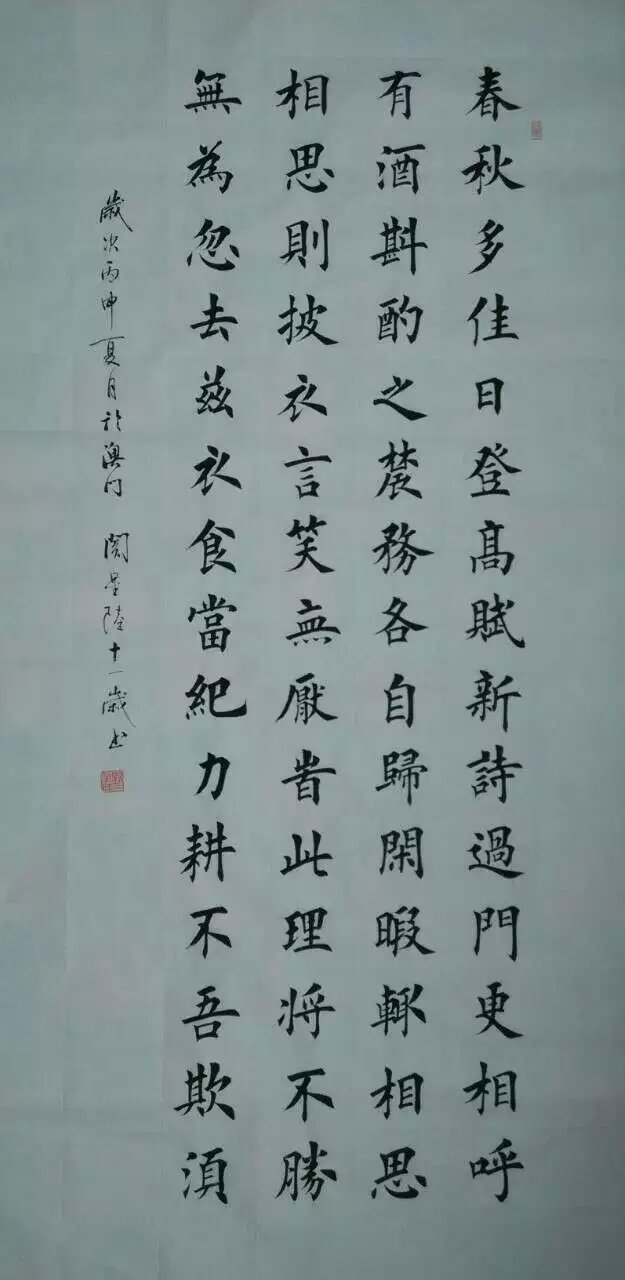 春秋多佳日登髙賦新詩過門更相呼
有酒斟酌之農務各自歸閑暇輙相思
相思則披衣言笑無厭旹此理将不勝
無為忽去茲衣食當紀力耕不吾欺須
歲次丙申夏月於澳門 關 陸十一歲书